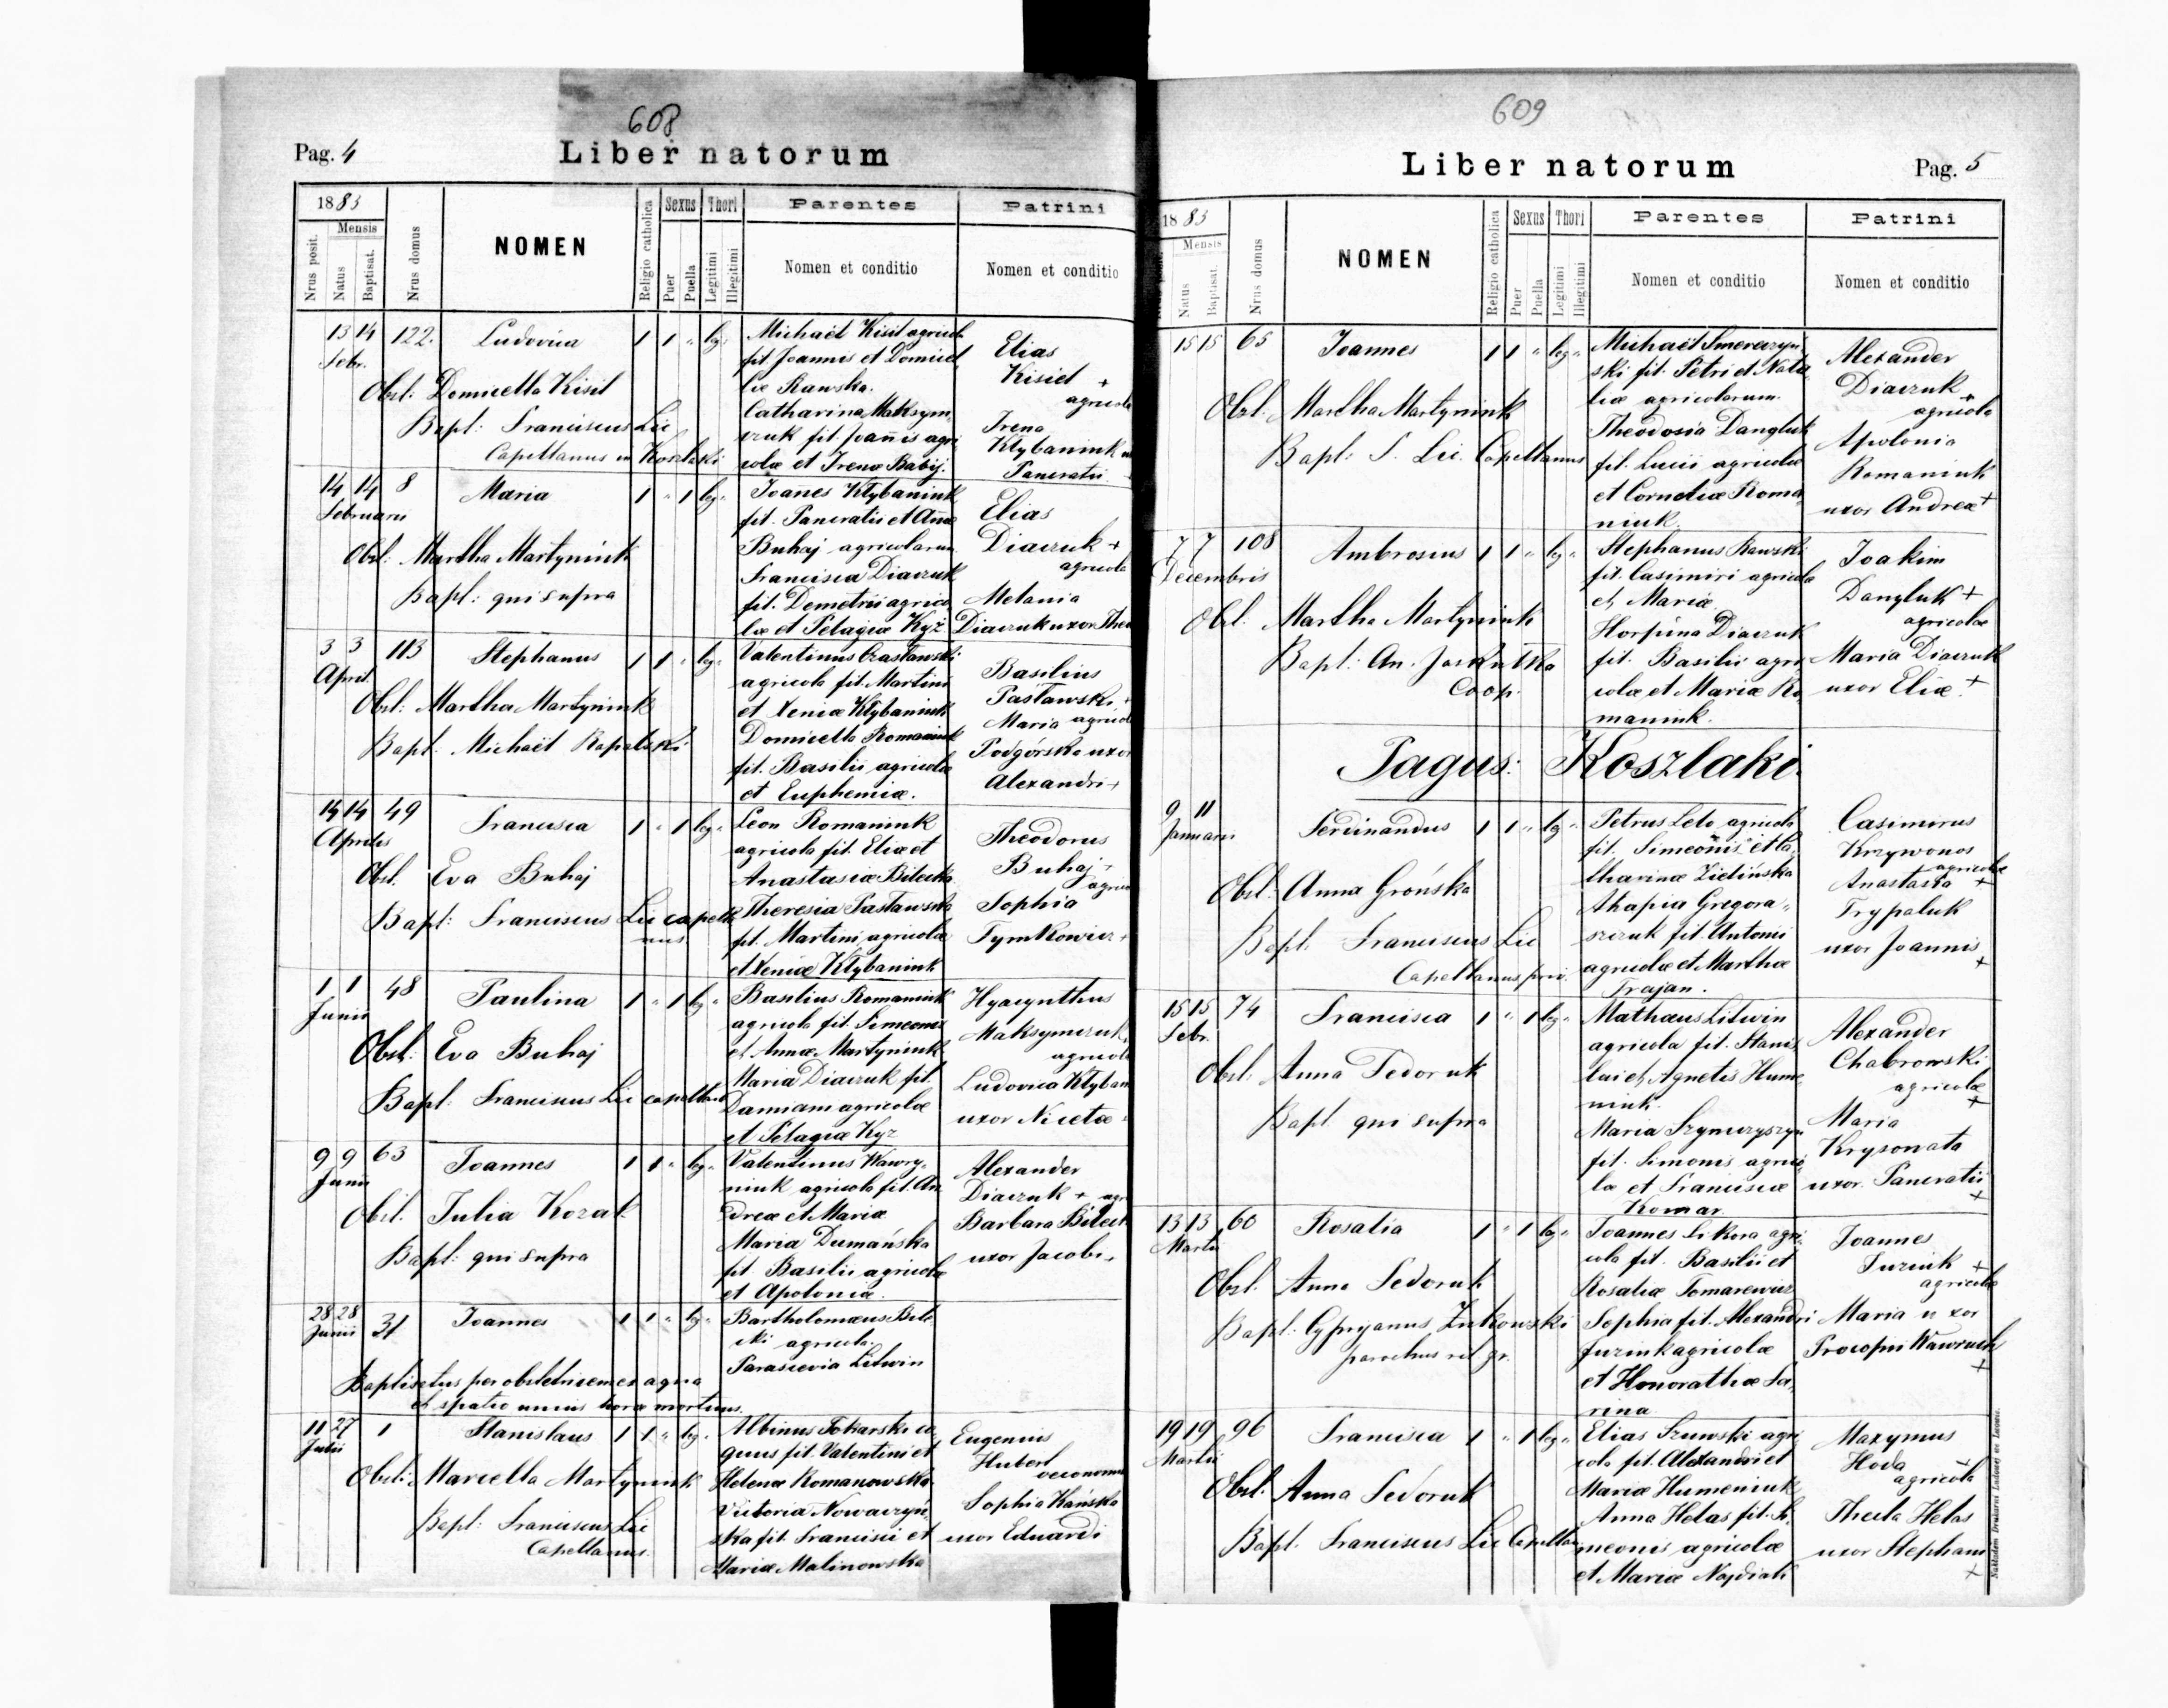 608
Pag. 4
Liber natorum
1883
Mensis
Nrus posit.
Natus
Baptisat.
Nrus domus
NOMEN
Religio catholica
Sexus
Puer
Puella
Thori
Legitimi
Illegitimi
Parentes
Nomen et conditio
Patrini
Nomen et conditio
13 14 122. Ludovica 1 1 " leg.
Febr.
Obst: Domicella Kisil
Bapt: Franciscus Lic
Capellanus in Koszlaki
Michaël Kisil agricola
fil. Joannis et Domicel
læ Rawska.
Catharina Maksym
czuk fil. Joannis agri
colæ et Irenæ Babij.
Elias
Kisiel +
agricola
Irena
Kłybaniuk
Pancratii
14 14 8 Maria 1 " 1 leg.
Februarii
Obst: Martha Martyniuk
Bapt: qui supra
Joannes Kłybaniuk
fil. Pancratii et Annæ
Buhaj agricolarum
Francisca Diaczuk
fil. Demetrii agrico
læ et Pelagiæ Kyż
Elias
Diaczuk +
agricola
Melania
Diaczuk uxor Theo
3 3 113 Stephanus 1 1 " leg.
April.
Obst: Martha Martyniuk
Bapt: Michaël Rapalski
Valentinus
agricola fil. Martini
et Xeniæ Kłybaniuk
Domicella Romaniuk
fil. Basilii agricolæ
et Euphemiæ.
Basilius
Pasławski +
Maria agricola
Podgórska uxor
Alexandri +
14 14 49 Francisca 1 " 1 leg.
Aprilis
Obst. Eva Buhaj
Bapt: Franciscus Lic capella
nus.
Leon Romaniuk
agricola fil. Eliæ et
Anastasiæ Bilecka
Theresia Pasławska
fil. Martini agricolæ
et Xeniæ Kłybaniuk
Theodorus
Buhaj +
agricola
Sophia
Tymkowicz +
1 1 48 Paulina 1 " 1 leg.
Junii
Obst: Eva Buhaj
Bapt: Franciscus Lic capellanus
Basilius Romaniuk
agricola fil. Simeonis
et Annæ Martyniuk
Maria Diaczuk fil.
Damiani agricolæ
et Pelagiæ Kyz
Hyacynthus
Maksymczuk
agricola
Ludovica Kłyban
uxor Nicetæ
9 9 63 Joannes 1 1 " leg.
Junii
Obst. Julia Kozak
Bapt: qui supra
Valentinus Wawry,
niuk agricola fil. An
dreæ et Mariæ
Maria Dumańska
fil. Basilii agricolæ
et Apoloniæ.
Alexander
Diaczuk + agr
Barbara Bileck
uxor Jacobi +
28 28 31 Joannes 1 1 " leg.
Junii
Baptisatus per obstetricem ex aqua
et spatio unius horæ mortuus.
Bartholomæus Bile
cki agricola.
Parascevia Litwin
11 27 1 Stanislaus 1 1 " leg.
Julii
Obst: Marcella Martyniuk
Bapt: Franciscus Lic
Capellanus.
Albinus Tokarski co
quus fil. Valentini et
Helenæ Romanowska
Victoria Nowaczyń,
ska fil. Francisci et
Mariæ Malinowska
Eugenius
Hubert
oeconomus
Sophia Kańska
uxor Eduardi
609
Liber natorum
Pag. 5
1883
Mensis
Natus
Baptisat.
Nrus domus
NOMEN
Religio catholica
Sexus
Puer
Puella
Thori
Legitimi
Illegitimi
Parentes
Nomen et conditio
Patrini
Nomen et conditio
15 15 65 Joannes 1 1 " leg.
Obst. Martha Martyniuk
Bapt: F. Lic. Capellanus
Michaël Smereczyn
ski fil. Petri et Nata
liæ agricolarum.
Theodosia Dangluk
fil. Lucii agricolæ
et Corneliæ Roma
niuk.
Alexander
Diaczuk
agricola +
Apolonia
Romaniuk
uxor Andreæ +
7 7 108 Ambrosius 1 1 " leg.
Decembris
Obst. Martha Martyniuk
Coop.
Stephanus Rawski
fil. Casimiri agricolæ
et Mariæ
Horpina Diaczuk
fil. Basilii agri
colæ et Mariæ Ro
maniuk.
Joakim
Dangluk +
agricola
Maria Diaczuk
uxor Eliæ +
Pagus: Koszlaki.
9 11 Ferdinandus 1 1 " leg.
Januarii
Obst: Anna Grońska
Bapt. Franciscus Lic
Capellanus
Petrus Leto agricola
fil. Simeonis et Ca,
tharinæ Zielińska
Ahapia Gregora,,
szczuk fil. Antonii
agricolæ et Marthæ
Trajan.
Casimirus
Krzywonos
agricola +
Anastasia
Trypaluk
uxor Joannis +
15 15 74 Francisca 1 " 1 leg.
Febr.
Obst: Anna Fedoruk
Bapt. qui supra
Mathæus Litwin
agricola fil. Stanis
lai et Agnetis Hume
niuk.
Maria Szymczyszyn
fil. Simonis agrico
læ et Franciscæ
Komar.
Alexander
Chabrowski
agricola +
Maria
Krysowata
uxor Pancratii +
13 13 60 Rosalia 1 " 1 leg.
Martii
Obst. Anna Fedoruk
Bapt: Cypryanus Żukowski
parochus rit gr.
Joannes Sikora agri
cola fil. Basilii et
Rosaliæ Tomarewicz
Sophia fil. Alexandri
Juzink agricolæ
et Honorathæ
rina
Joannes
Juzink +
agricola
Maria uxor
Procopii Wawruch +
19 19 96 Francisca 1 " 1 leg.
Martii
Obst. Anna Fedoruk
Bapt. Franciscus Lic Capellan
Elias Szumski agri
cola fil. Alexandri et
Mariæ Humeniuk
Anna Helas fil. Si
meonis agricolæ
et Mariæ Najdiak
Maxymus
Hoda +
agricola
Thecla Helas
uxor Stephani +
Nakładem Drukarni Ludowej we Lwowie.